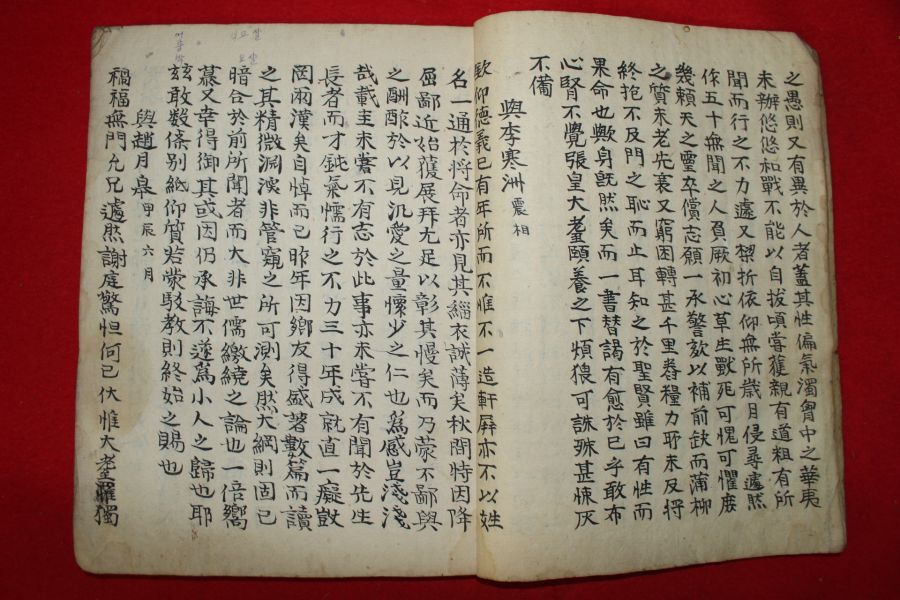 之愚則又有異於人者蓋其性偏氣濁胷中之華夷
未辦悠悠和戰不能以自拔頃嘗獲親有道粗有所
聞而行之不力遽又棃折依仰無所歲月侵尋遽然
作五十無聞之人負厥初心草生獸死可愧可懼庶
幾賴天之靈卒償志願一承警欬以補前缺而蒲柳
之質未老先衰又窮困轉甚千里眷糧力耶未及將
終抱不及門之恥而止耳知之於聖賢雖曰有性而
果命也歟身旣然矣而一書替謁有愈於已乎敢布
心腎不覺張皇大耋頤養之下煩猥可誅殊甚悚仄
不備
與李寒洲 震相
歆仰德義已有年所而不惟不一造軒屛亦不以姓
名一通於將命者亦見其緇衣誠薄矣秋間特因降
屈鄙近始獲展拜尤足以彰其慢矣而乃蒙不鄙與
之酬酢於以見汎愛之量懷少之仁也爲感豈淺淺
哉載圭未嘗不有志於此事亦未嘗不有聞於先生
長者而才鈍氣懦行之不力三十年成就直一癡獃
罔兩漢矣自悼而已昨年因鄕友得盛著數篇而讀
之其精微洞深非管窺之所可測矣然大綱則固已
暗合於前所聞者而大非世儒繳繞之論也一倍嚮
慕又幸得御其或因仍承誨不遂爲小人之歸也耶
玆敢數條別紙仰質若蒙駁敎則終始之賜也
與趙月皐 甲辰六月
禍福無門允兄遽然謝庭驚怛何已伏惟大耋罹獨